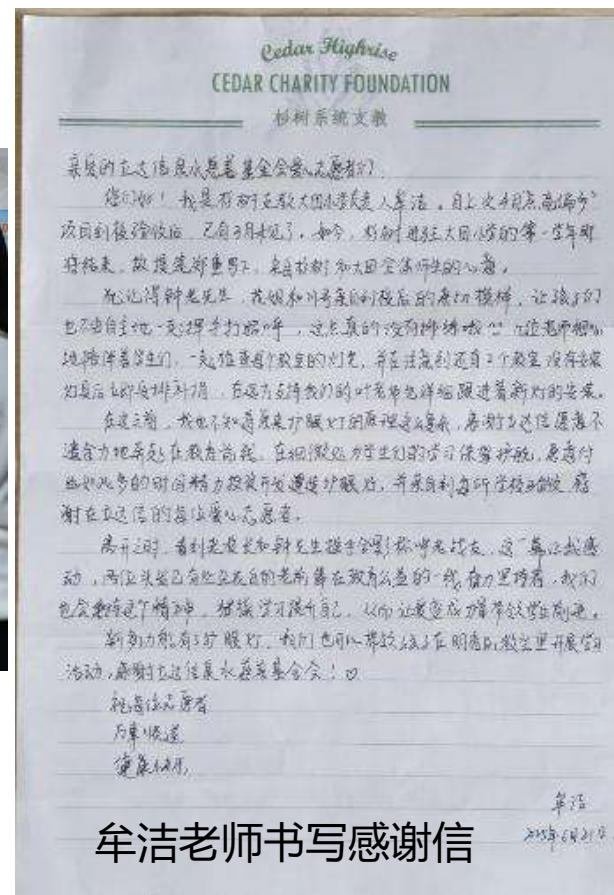 Cedar Highrise
CEDAR CHARITY FOUNDATION
杉树系统支教
亲爱的立达信泉水慈善基金会爱心志愿者们
您们好！我是杉树支教大田小学负责人牟洁，自上次
项目到校验收后，已有月未见了。如今，杉树进驻大田小学的第一学年即
将结束，故提笔郑重写下，来自杉树和大田全体师生的心意。
犹记得钟老先生、花姐和 亲自到校后的亲切模样，让孩子们
也不由自主地一起挥手打招呼，这点真的没有排练哦 几位老师细心
地陪伴着学生们，一起检查每个教室的灯光，并在注意到还有2个教室没有安装
灯具后立即安排补 ，在远方支持我们的叶老师也详细跟进着新灯的安装。
在这之前，我也不知 护眼灯的原理这么复杂，感谢立达信愿意不
遗余力地奔赴在教育前线，在细微处为学生们的学习保驾护航，愿意付
出如此多的时间精力投资开发 护眼灯，并亲自到每所学校 感
谢在立达信的每位爱心志愿者。
离开之时，看到老校长和钟先生握手合影称呼老战友，这一幕让我感
动，两位头发已有些花白的老前辈在教育公益的一线，奋力坚持着，我们
也会 这个精神，继续学习提升自己，从而让更多 力量带领学生前进。
新 有了护眼灯，我们也可以带领孩子在明亮的教室里开展学习
活动，感谢立达信泉水慈善基金会！♡
祝每位志愿者
万事顺遂
健康快乐
牟洁
2025年6月21日
牟洁老师书写感谢信